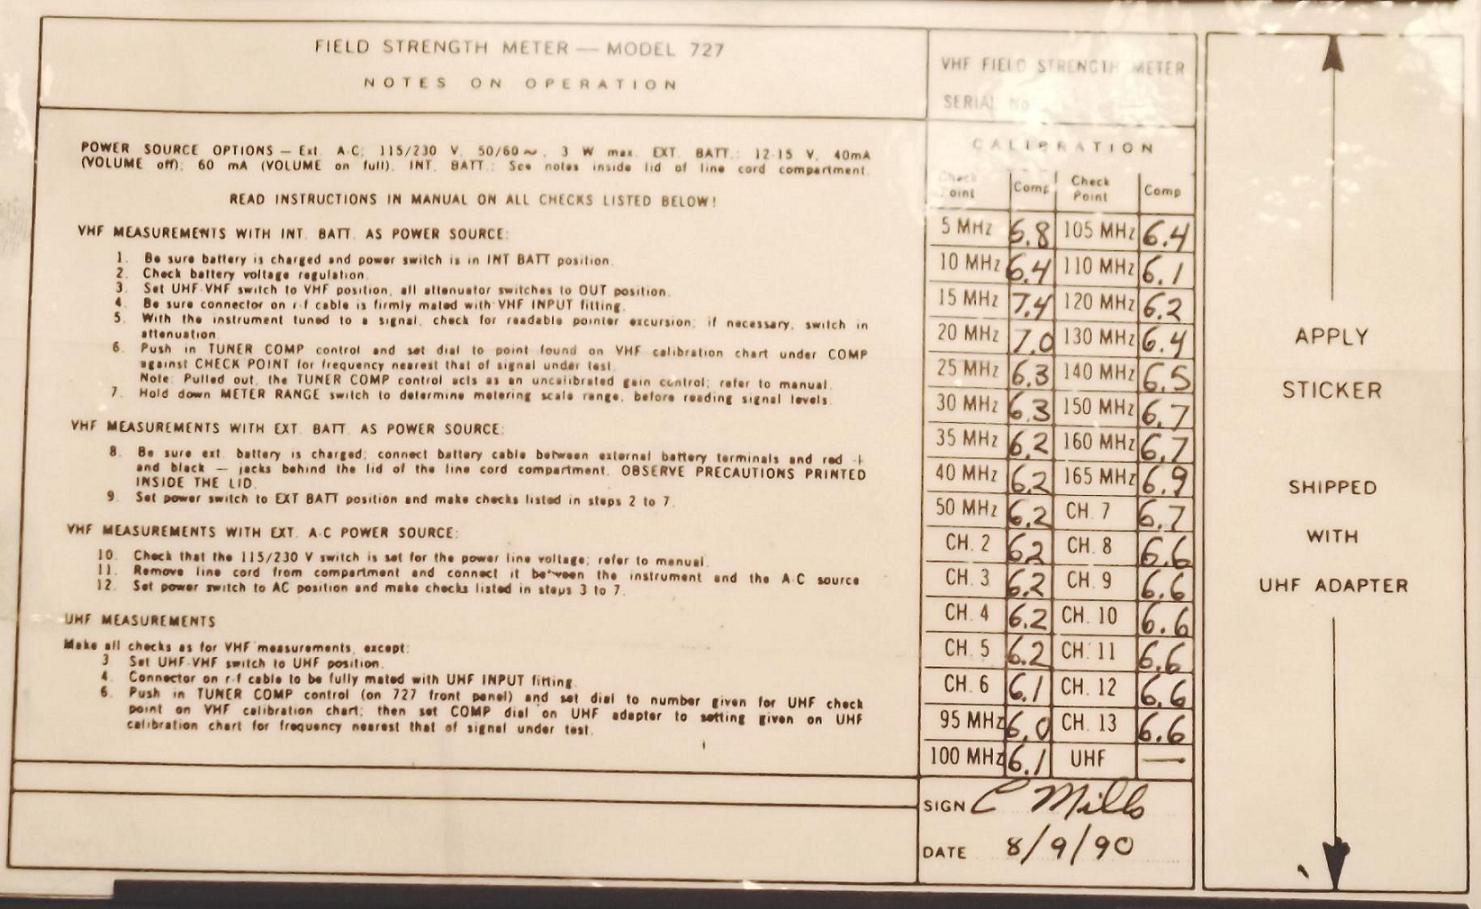 FIELD STRENGTH METER — MODEL 727
NOTES ON OPERATION
POWER SOURCE OPTIONS — Ext. A-C: 115/230 V, 50/60 ~, 3 W max. EXT. BATT.: 12-15 V, 40mA
(VOLUME off); 60 mA (VOLUME on full). INT. BATT.: See notes inside lid of line cord compartment.
READ INSTRUCTIONS IN MANUAL ON ALL CHECKS LISTED BELOW!
VHF MEASUREMENTS WITH INT. BATT. AS POWER SOURCE:
1. Be sure battery is charged and power switch is in INT BATT position.
2. Check battery voltage regulation.
3. Set UHF-VHF switch to VHF position, all attenuator switches to OUT position.
4. Be sure connector on r-f cable is firmly mated with VHF INPUT fitting.
5. With the instrument tuned to a signal, check for readable pointer excursion; if necessary, switch in
attenuation.
6. Push in TUNER COMP control and set dial to point found on VHF calibration chart under COMP
against CHECK POINT for frequency nearest that of signal under test.
Note: Pulled out, the TUNER COMP control acts as an uncalibrated gain control; refer to manual.
7. Hold down METER RANGE switch to determine metering scale range, before reading signal levels.
VHF MEASUREMENTS WITH EXT. BATT. AS POWER SOURCE:
8. Be sure ext. battery is charged; connect battery cable between external battery terminals and red +
and black — jacks behind the lid of the line cord compartment. OBSERVE PRECAUTIONS PRINTED
INSIDE THE LID.
9. Set power switch to EXT BATT position and make checks listed in steps 2 to 7.
VHF MEASUREMENTS WITH EXT. A-C POWER SOURCE:
10. Check that the 115/230 V switch is set for the power line voltage; refer to manual.
11. Remove line cord from compartment and connect it between the instrument and the A-C source
12. Set power switch to AC position and make checks listed in steps 3 to 7.
UHF MEASUREMENTS
Make all checks as for VHF measurements, except:
3 Set UHF-VHF switch to UHF position.
4. Connector on r-f cable to be fully mated with UHF INPUT fitting.
6. Push in TUNER COMP control (on 727 front panel) and set dial to number given for UHF check
point on VHF calibration chart; then set COMP dial on UHF adapter to setting given on UHF
calibration chart for frequency nearest that of signal under test.
VHF FIELD STRENGTH METER
SERIAL No
CALIBRATION
Check Point Comp Check Point Comp
5 MHz 6.8 105 MHz 6.4
10 MHz 6.4 110 MHz 6.1
15 MHz 7.4 120 MHz 6.2
20 MHz 7.0 130 MHz 6.4
25 MHz 6.3 140 MHz 6.5
30 MHz 6.3 150 MHz 6.7
35 MHz 6.2 160 MHz 6.7
40 MHz 6.2 165 MHz 6.9
50 MHz 6.2 CH. 7 6.7
CH. 2 6.2 CH. 8 6.6
CH. 3 6.2 CH. 9 6.6
CH. 4 6.2 CH. 10 6.6
CH. 5 6.2 CH. 11 6.6
CH. 6 6.1 CH. 12 6.6
95 MHz 6.0 CH. 13 6.6
100 MHz 6.1 UHF —
SIGN C Mills
DATE 8/9/90
APPLY
STICKER
SHIPPED
WITH
UHF ADAPTER